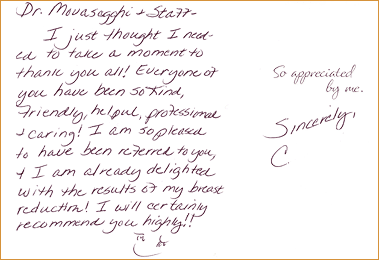 Dr. Movasagghi + Staff-
I just thought I need-
ed to take a moment to
thank you all! Everyone of
you have been so kind,
friendly, helpul, professional
+ caring! I am so pleased
to have been referred to you,
+ I am already delighted
with the results of my breast
reduction! I will certainly
recommend you highly!!
So appreciated
by me.
Sincerely,
C.